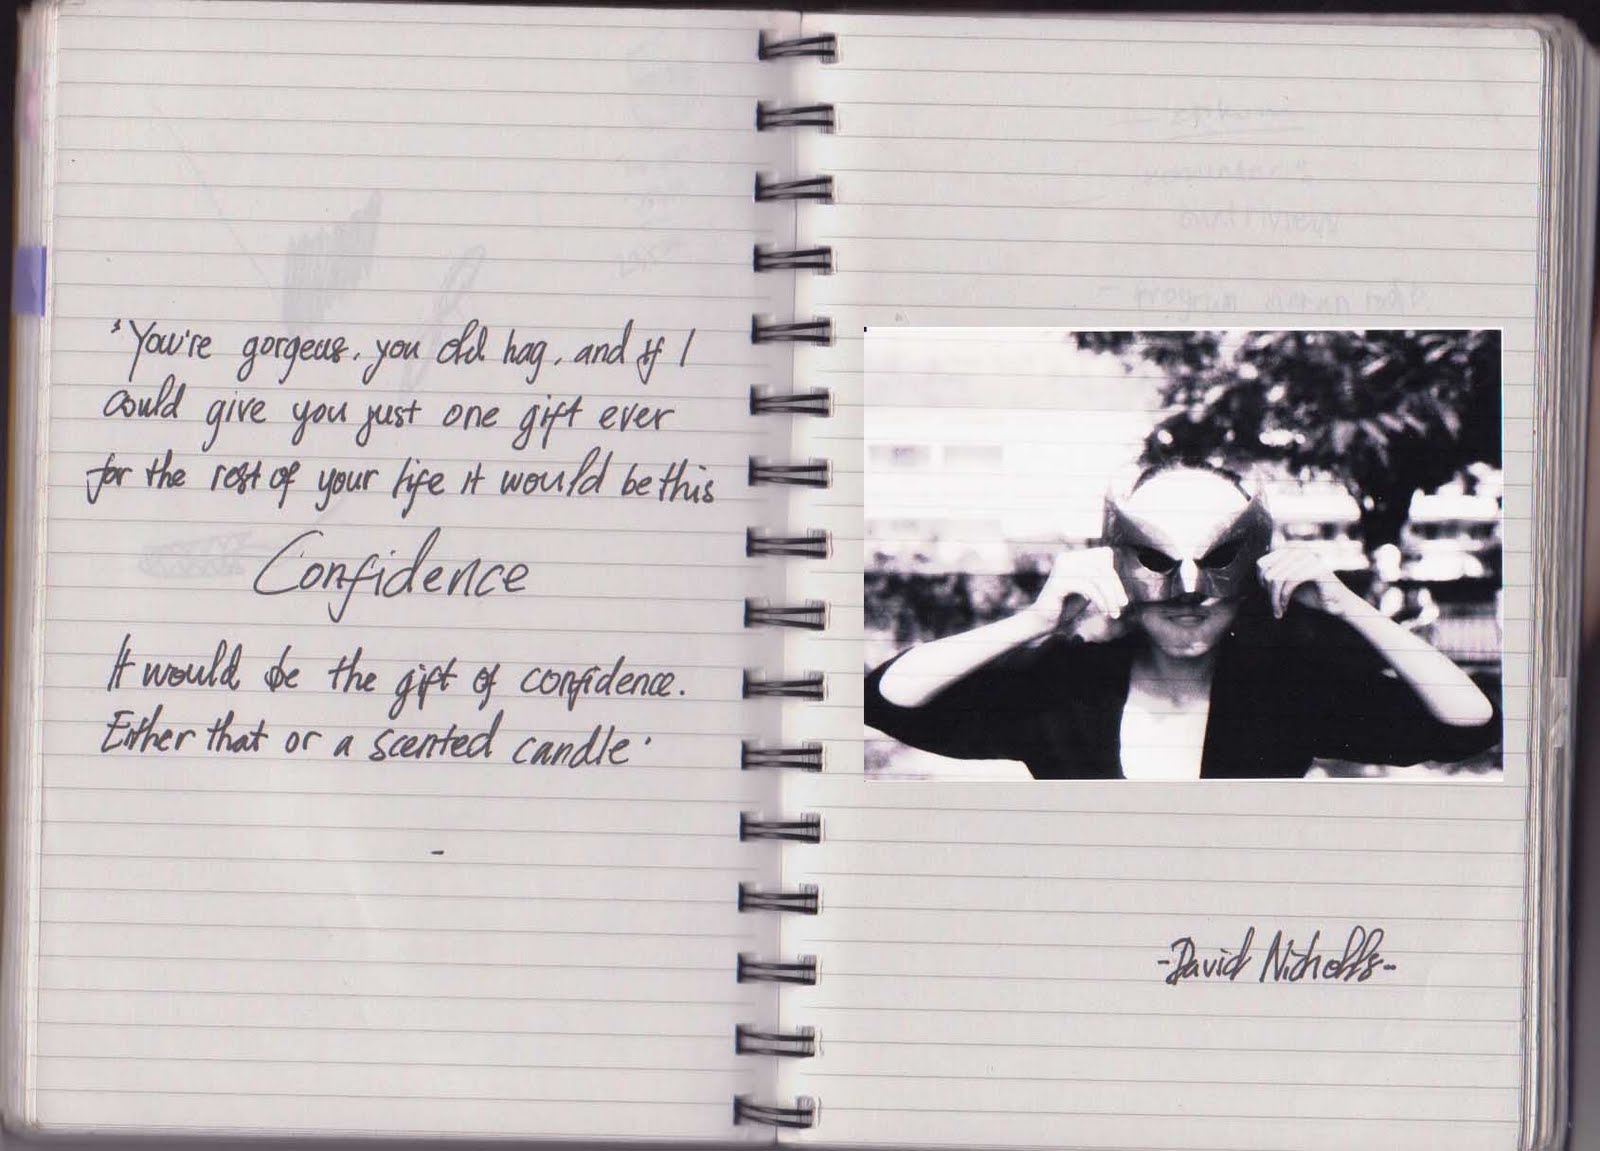 'You're gorgeus, you old hag, and if I
could give you just one gift ever
for the rest of your life it would be this
Confidence
It would be the gift of confidence.
Either that or a scented candle'
-
-David Nicholls-